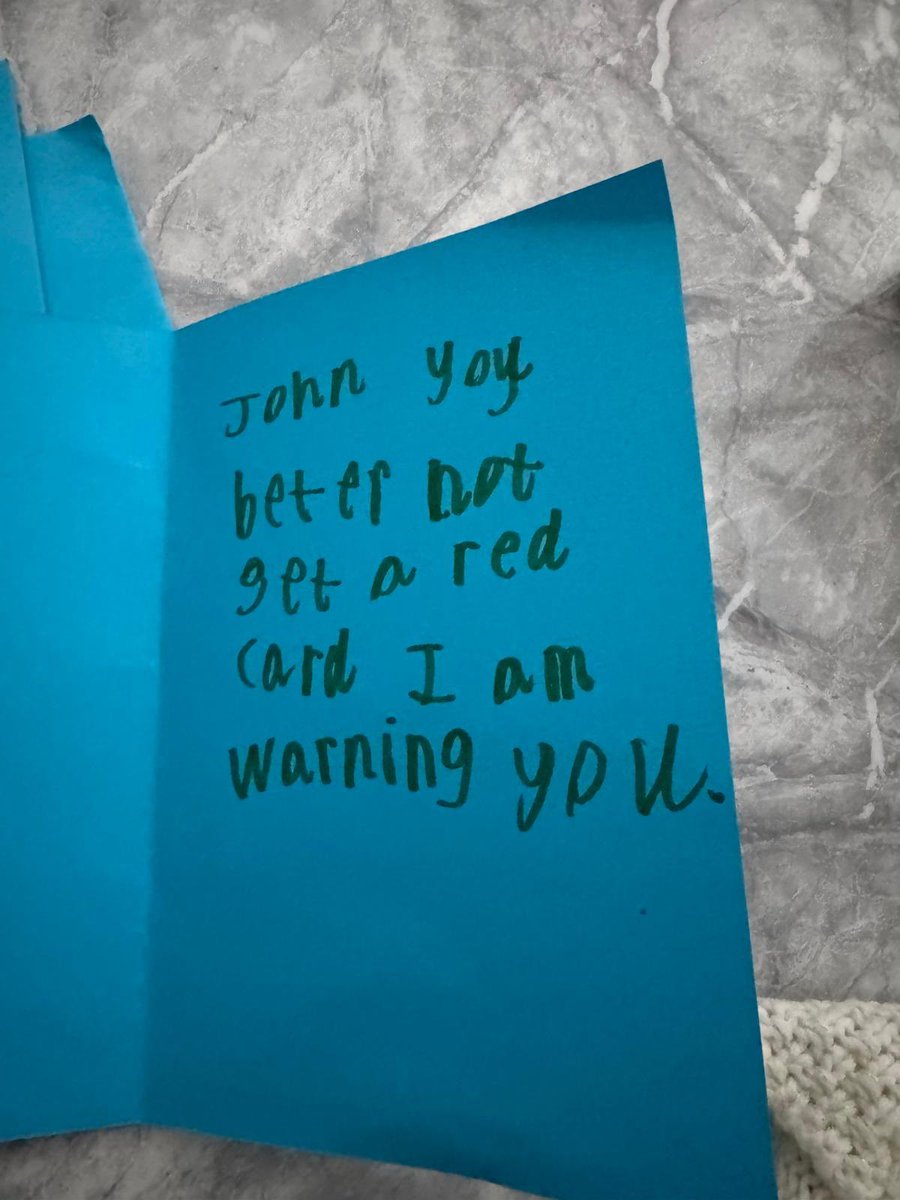 John you
beter not
get a red
card I am
warning you.